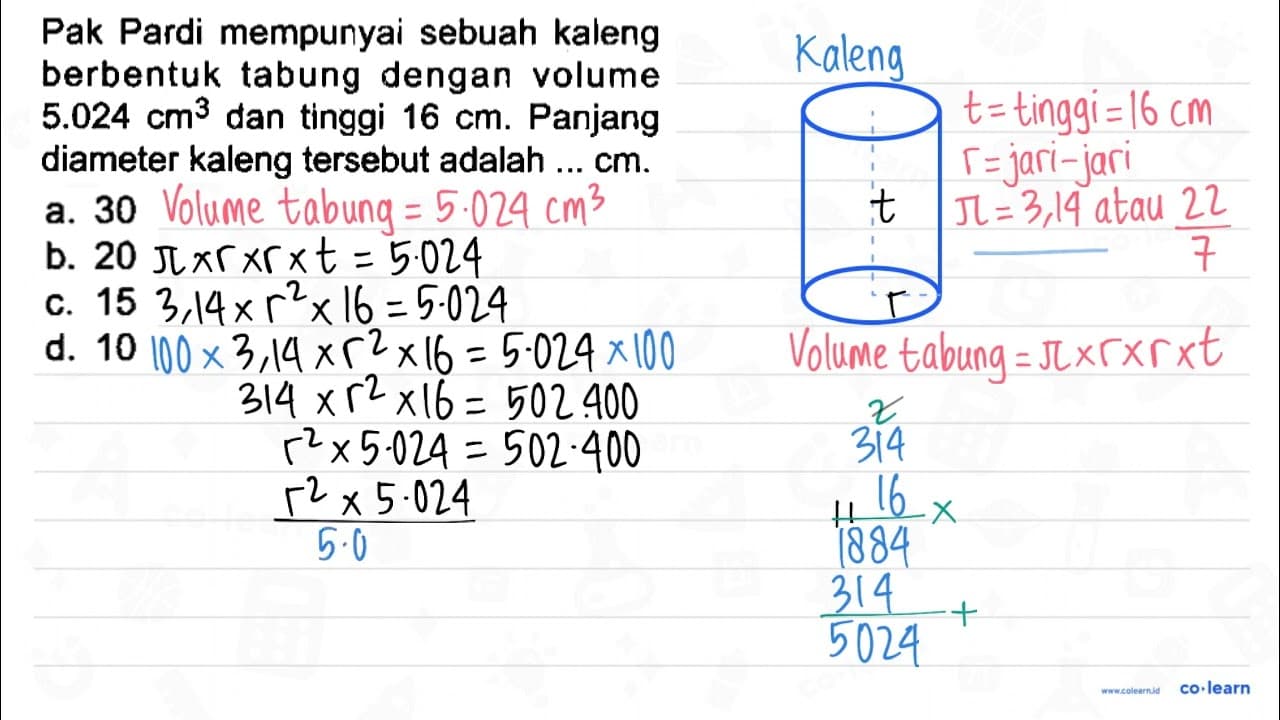 Pak Pardi mempunyai sebuah kaleng
berbentuk tabung dengan volume
5.024 cm³ dan tinggi 16 cm. Panjang
diameter kaleng tersebut adalah ... cm.
a. 30
b. 20
c. 15
d. 10
Volume tabung = 5.024 cm³
π × r × r × t = 5.024
3,14 × r² × 16 = 5.024
100 × 3,14 × r² × 16 = 5.024 × 100
314 × r² × 16 = 502.400
r² × 5.024 = 502.400
r² × 5.024
5.0
Kaleng
t
r
t = tinggi = 16 cm
r = jari-jari
π = 3,14 atau 22
7
Volume tabung = π × r × r × t
2
314
16 ×
11
1884
314 +
5024
www.colearn.id co·learn